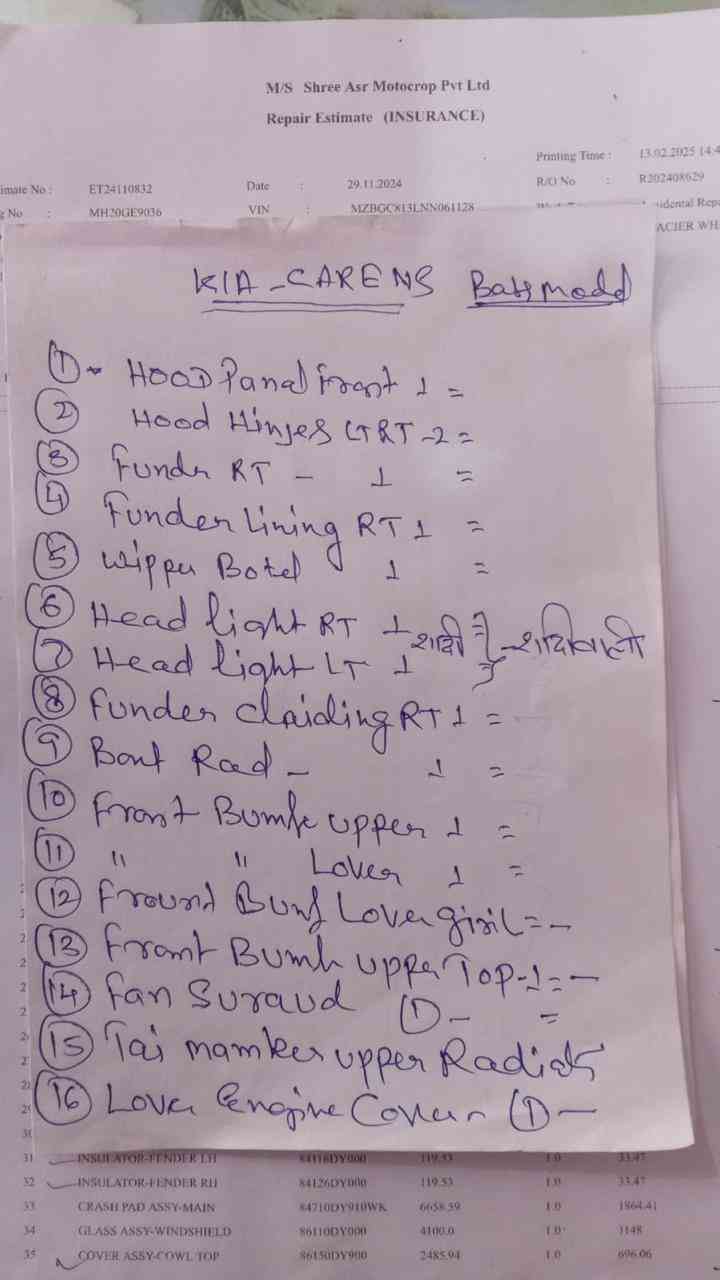 M/S Shree Asr Motocrop Pvt Ltd
Repair Estimate (INSURANCE)
Printing Time : 13.02.2025 14:4
imate No : ET24110832 Date : 29.11.2024 R/O No : R202408629
g No : MH20GE9036 VIN : MZBGC813LNN061128 idental Repa
ACIER WH
KIA - CARENS
① - HOOD Panal front 1 =
② Hood Hinjes LT RT - 2 =
③ Fundr RT - 1 =
④ Funder Lining RT 1 =
⑤ Wipper Botel 1 =
⑥ Head light RT 1
⑦ Head light LT 1
⑧ Funder Claiding RT 1 =
⑨ Bont Rad - 1 =
⑩ Front Bumfe upper 1 =
⑪ " " Lover 1 =
⑫ Fround Bumf Lover giril = -
⑬ Front Bumh upper Top - 1 = -
⑭ Fan Suraud ① - =
⑮ Tai mamber upper
⑯ Lover Engine Cover - ① -
31 INSULATOR-FENDER LH 84116DY000 119.53 1.0 33.47
32 INSULATOR-FENDER RH 84126DY000 119.53 1.0 33.47
33 CRASH PAD ASSY-MAIN 84710DY910WK 6658.59 1.0 1864.41
34 GLASS ASSY-WINDSHIELD 86110DY000 4100.0 1.0 1148
35 COVER ASSY-COWL TOP 86150DY900 2485.94 1.0 696.06